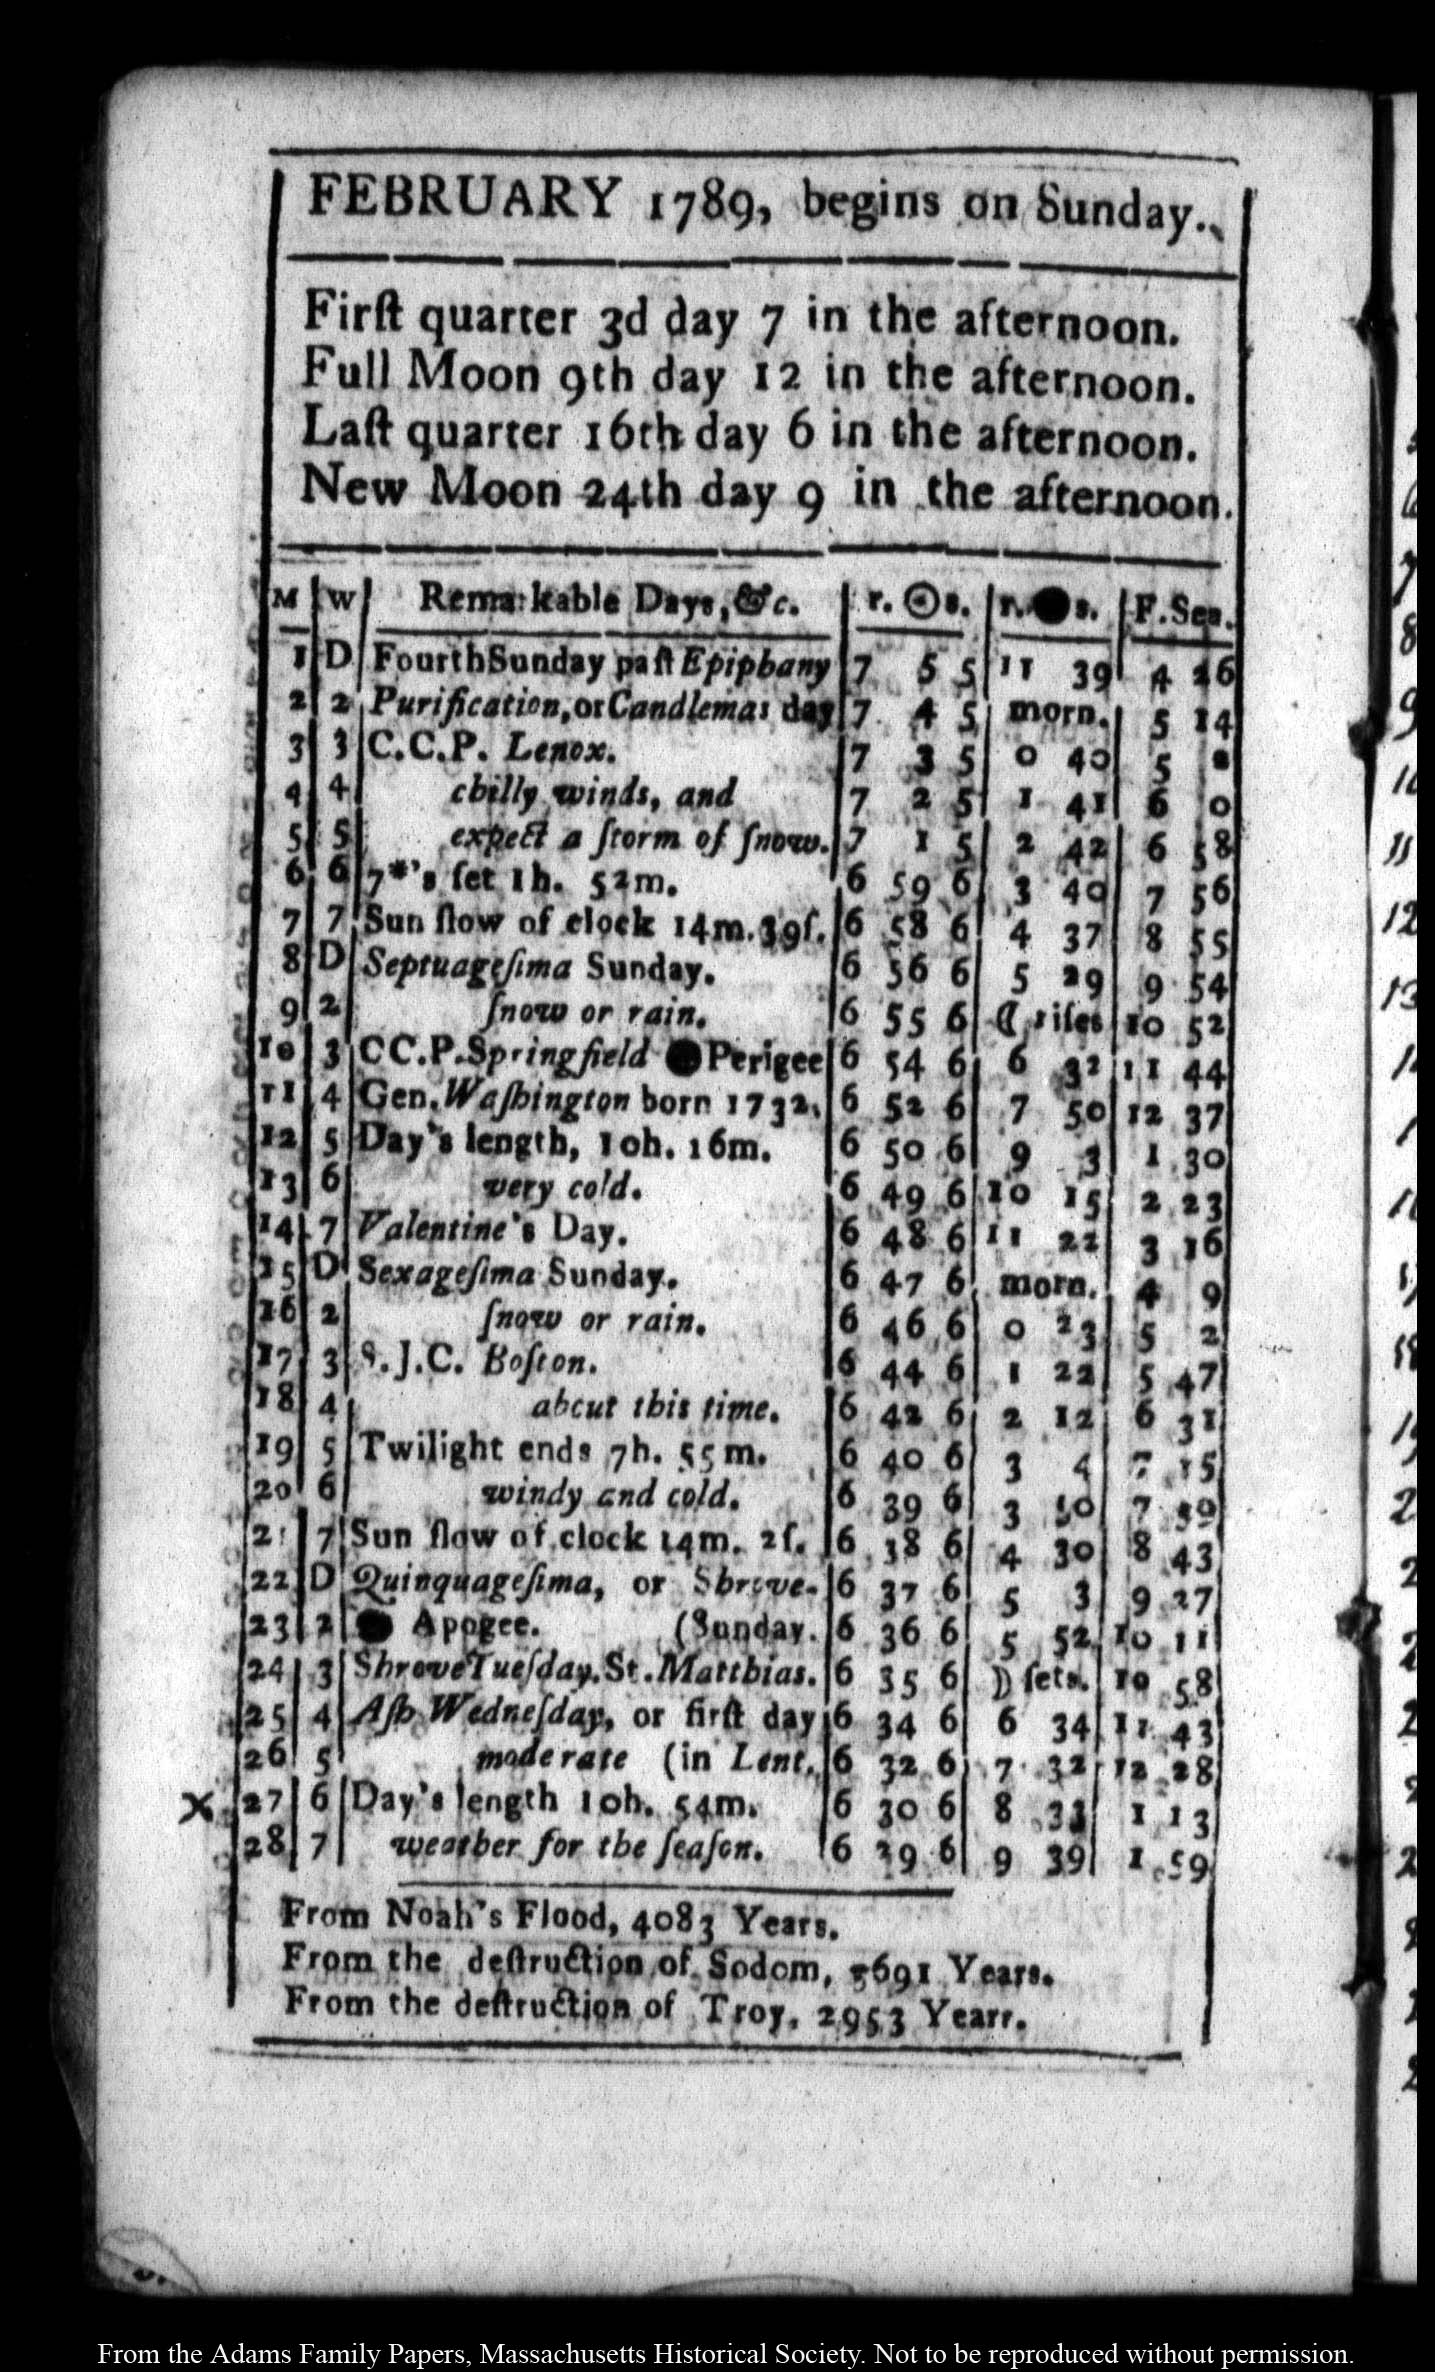 FEBRUARY 1789, begins on Sunday.
Firſt quarter 3d day 7 in the afternoon.
Full Moon 9th day 12 in the afternoon.
Laſt quarter 16th day 6 in the afternoon.
New Moon 24th day 9 in the afternoon.
M W Remarkable Days, &c. r. ☉ s. r. ● s. F. Sea.
1 D Fourth Sunday paſt Epiphany 7 5 5 11 39 4 26
2 2 Purification, or Candlemas day 7 4 5 morn. 5 14
3 3 C.C.P. Lenox. 7 3 5 0 40 5
4 4 chilly winds, and 7 2 5 1 41 6 0
5 5 expect a ſtorm of ſnow. 7 1 5 2 42 6 58
6 6 7*'s ſet 1h. 52m. 6 59 6 3 40 7 56
7 7 Sun ſlow of clock 14m. 39ſ. 6 58 6 4 37 8 55
8 D Septuageſima Sunday. 6 56 6 5 29 9 54
9 2 ſnow or rain. 6 55 6 ☾ riſes 10 52
10 3 CC.P. Springfield ● Perigee 6 54 6 6 32 11 44
11 4 Gen. Waſhington born 1732. 6 52 6 7 50 12 37
12 5 Day's length, 10h. 16m. 6 50 6 9 3 1 30
13 6 very cold. 6 49 6 10 15 2 23
14 7 Valentine's Day. 6 48 6 11 22 3 16
15 D Sexageſima Sunday. 6 47 6 morn. 4 9
16 2 ſnow or rain. 6 46 6 0 23 5 2
17 3 S.J.C. Boſton. 6 44 6 1 22 5 47
18 4 abcut this time. 6 42 6 2 12 6 31
19 5 Twilight ends 7h. 55m. 6 40 6 3 4 7 15
20 6 windy and cold. 6 39 6 3 50 7 59
21 7 Sun ſlow of clock 14m. 2ſ. 6 38 6 4 30 8 43
22 D Quinquageſima, or Shrove- 6 37 6 5 3 9 27
23 2 ● Apogee. (Sunday. 6 36 6 5 52 10 11
24 3 Shrove Tueſday. St. Matthias. 6 35 6 ☽ ſets. 10 58
25 4 Aſh Wedneſday, or firſt day 6 34 6 6 34 11 43
26 5 moderate (in Lent. 6 32 6 7 32 12 28
X 27 6 Day's length 10h. 54m. 6 30 6 8 33 1 13
28 7 weather for the ſeaſon. 6 29 6 9 39 1 59
From Noah's Flood, 4083 Years.
From the deſtruction of Sodom, 3691 Years.
From the deſtruction of Troy, 2953 Yearr.
From the Adams Family Papers, Massachusetts Historical Society. Not to be reproduced without permission.